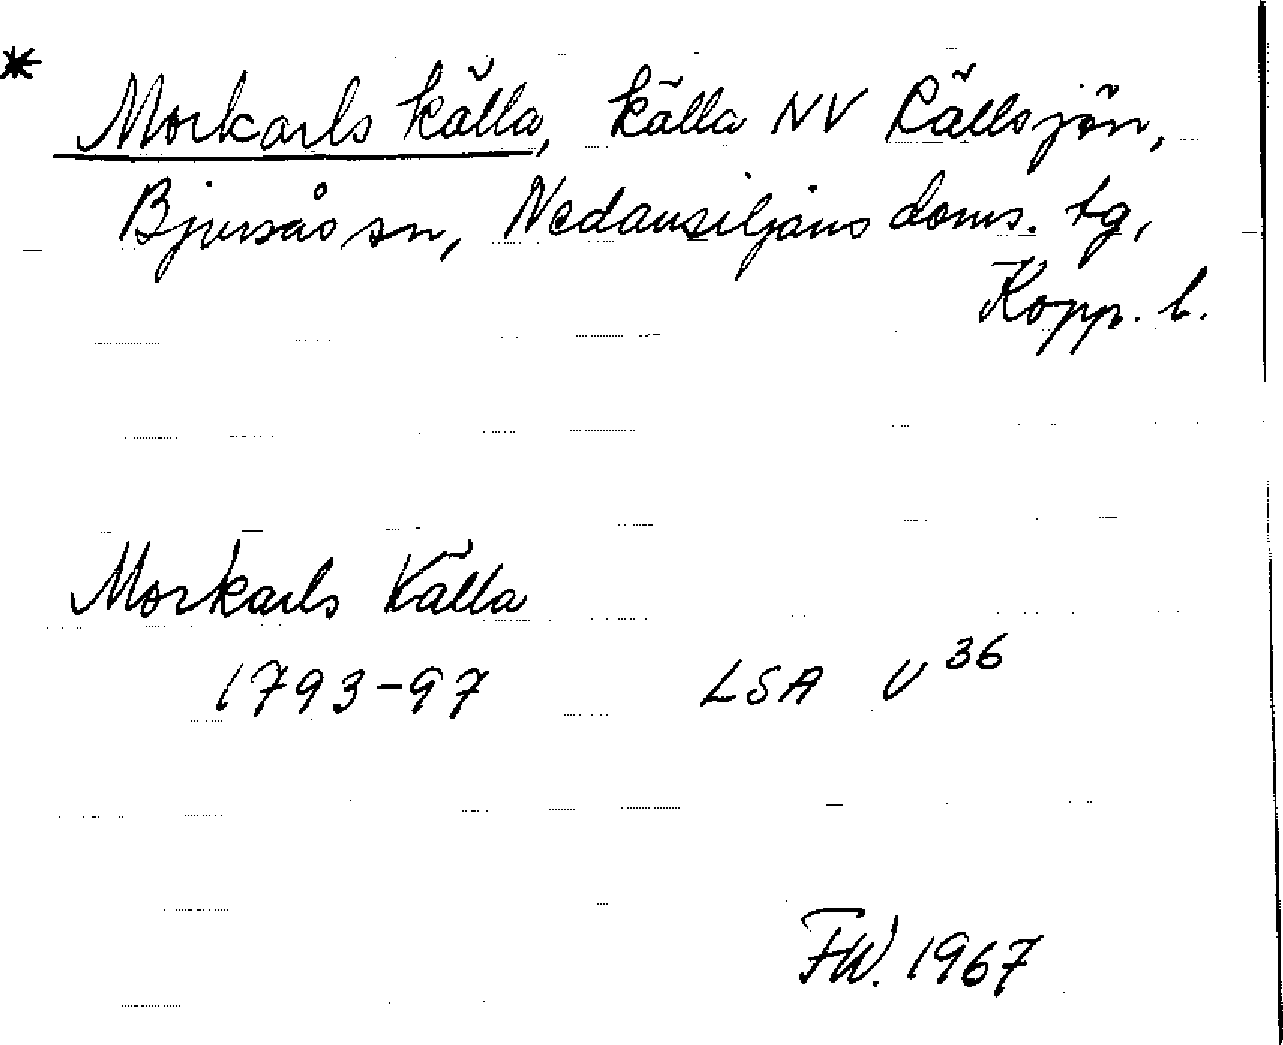 * Morkarls källa, källa NV Rällsjön,
Bjursås sn, Nedansiljans doms. tg,
Kopp. l.
Morkarls Källa
1793-97 LSA U 36
FW. 1967